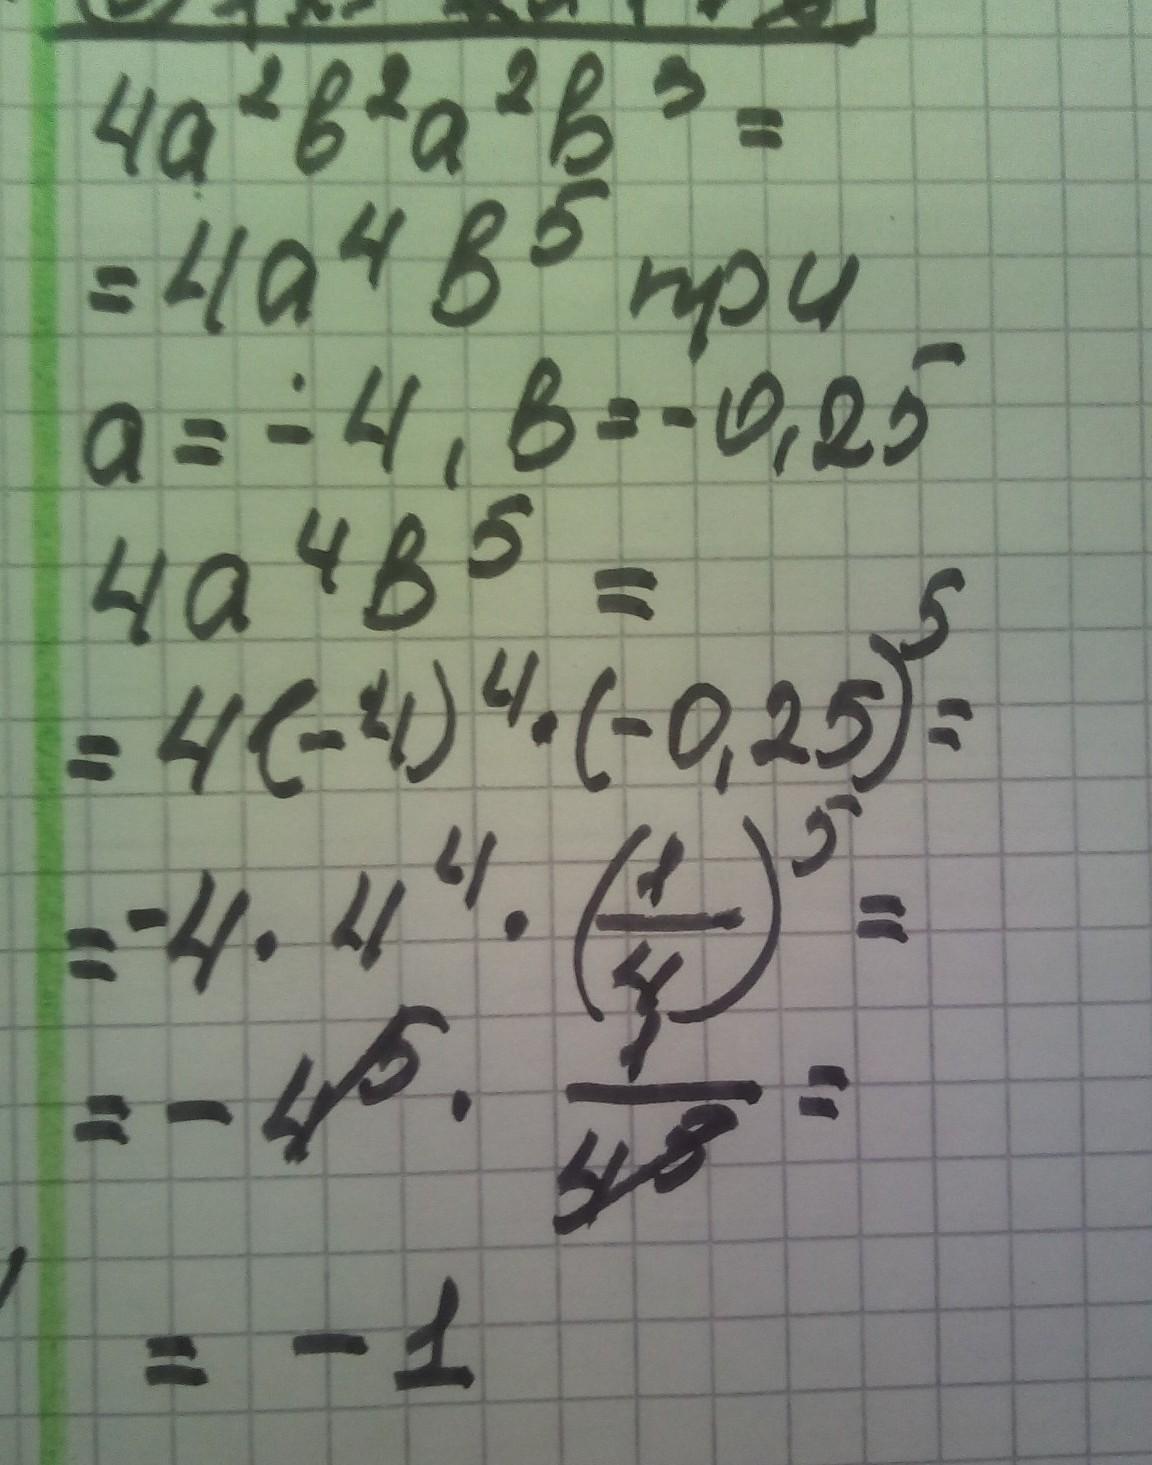 4a²b²a²b³ =
= 4a⁴b⁵ при
a = -4, b = -0,25
4a⁴b⁵ =
= 4(-4)⁴·(-0,25)⁵ =
= -4·4⁴·(1/4)⁵ =
= -4⁵·1/4⁵ =
= -1